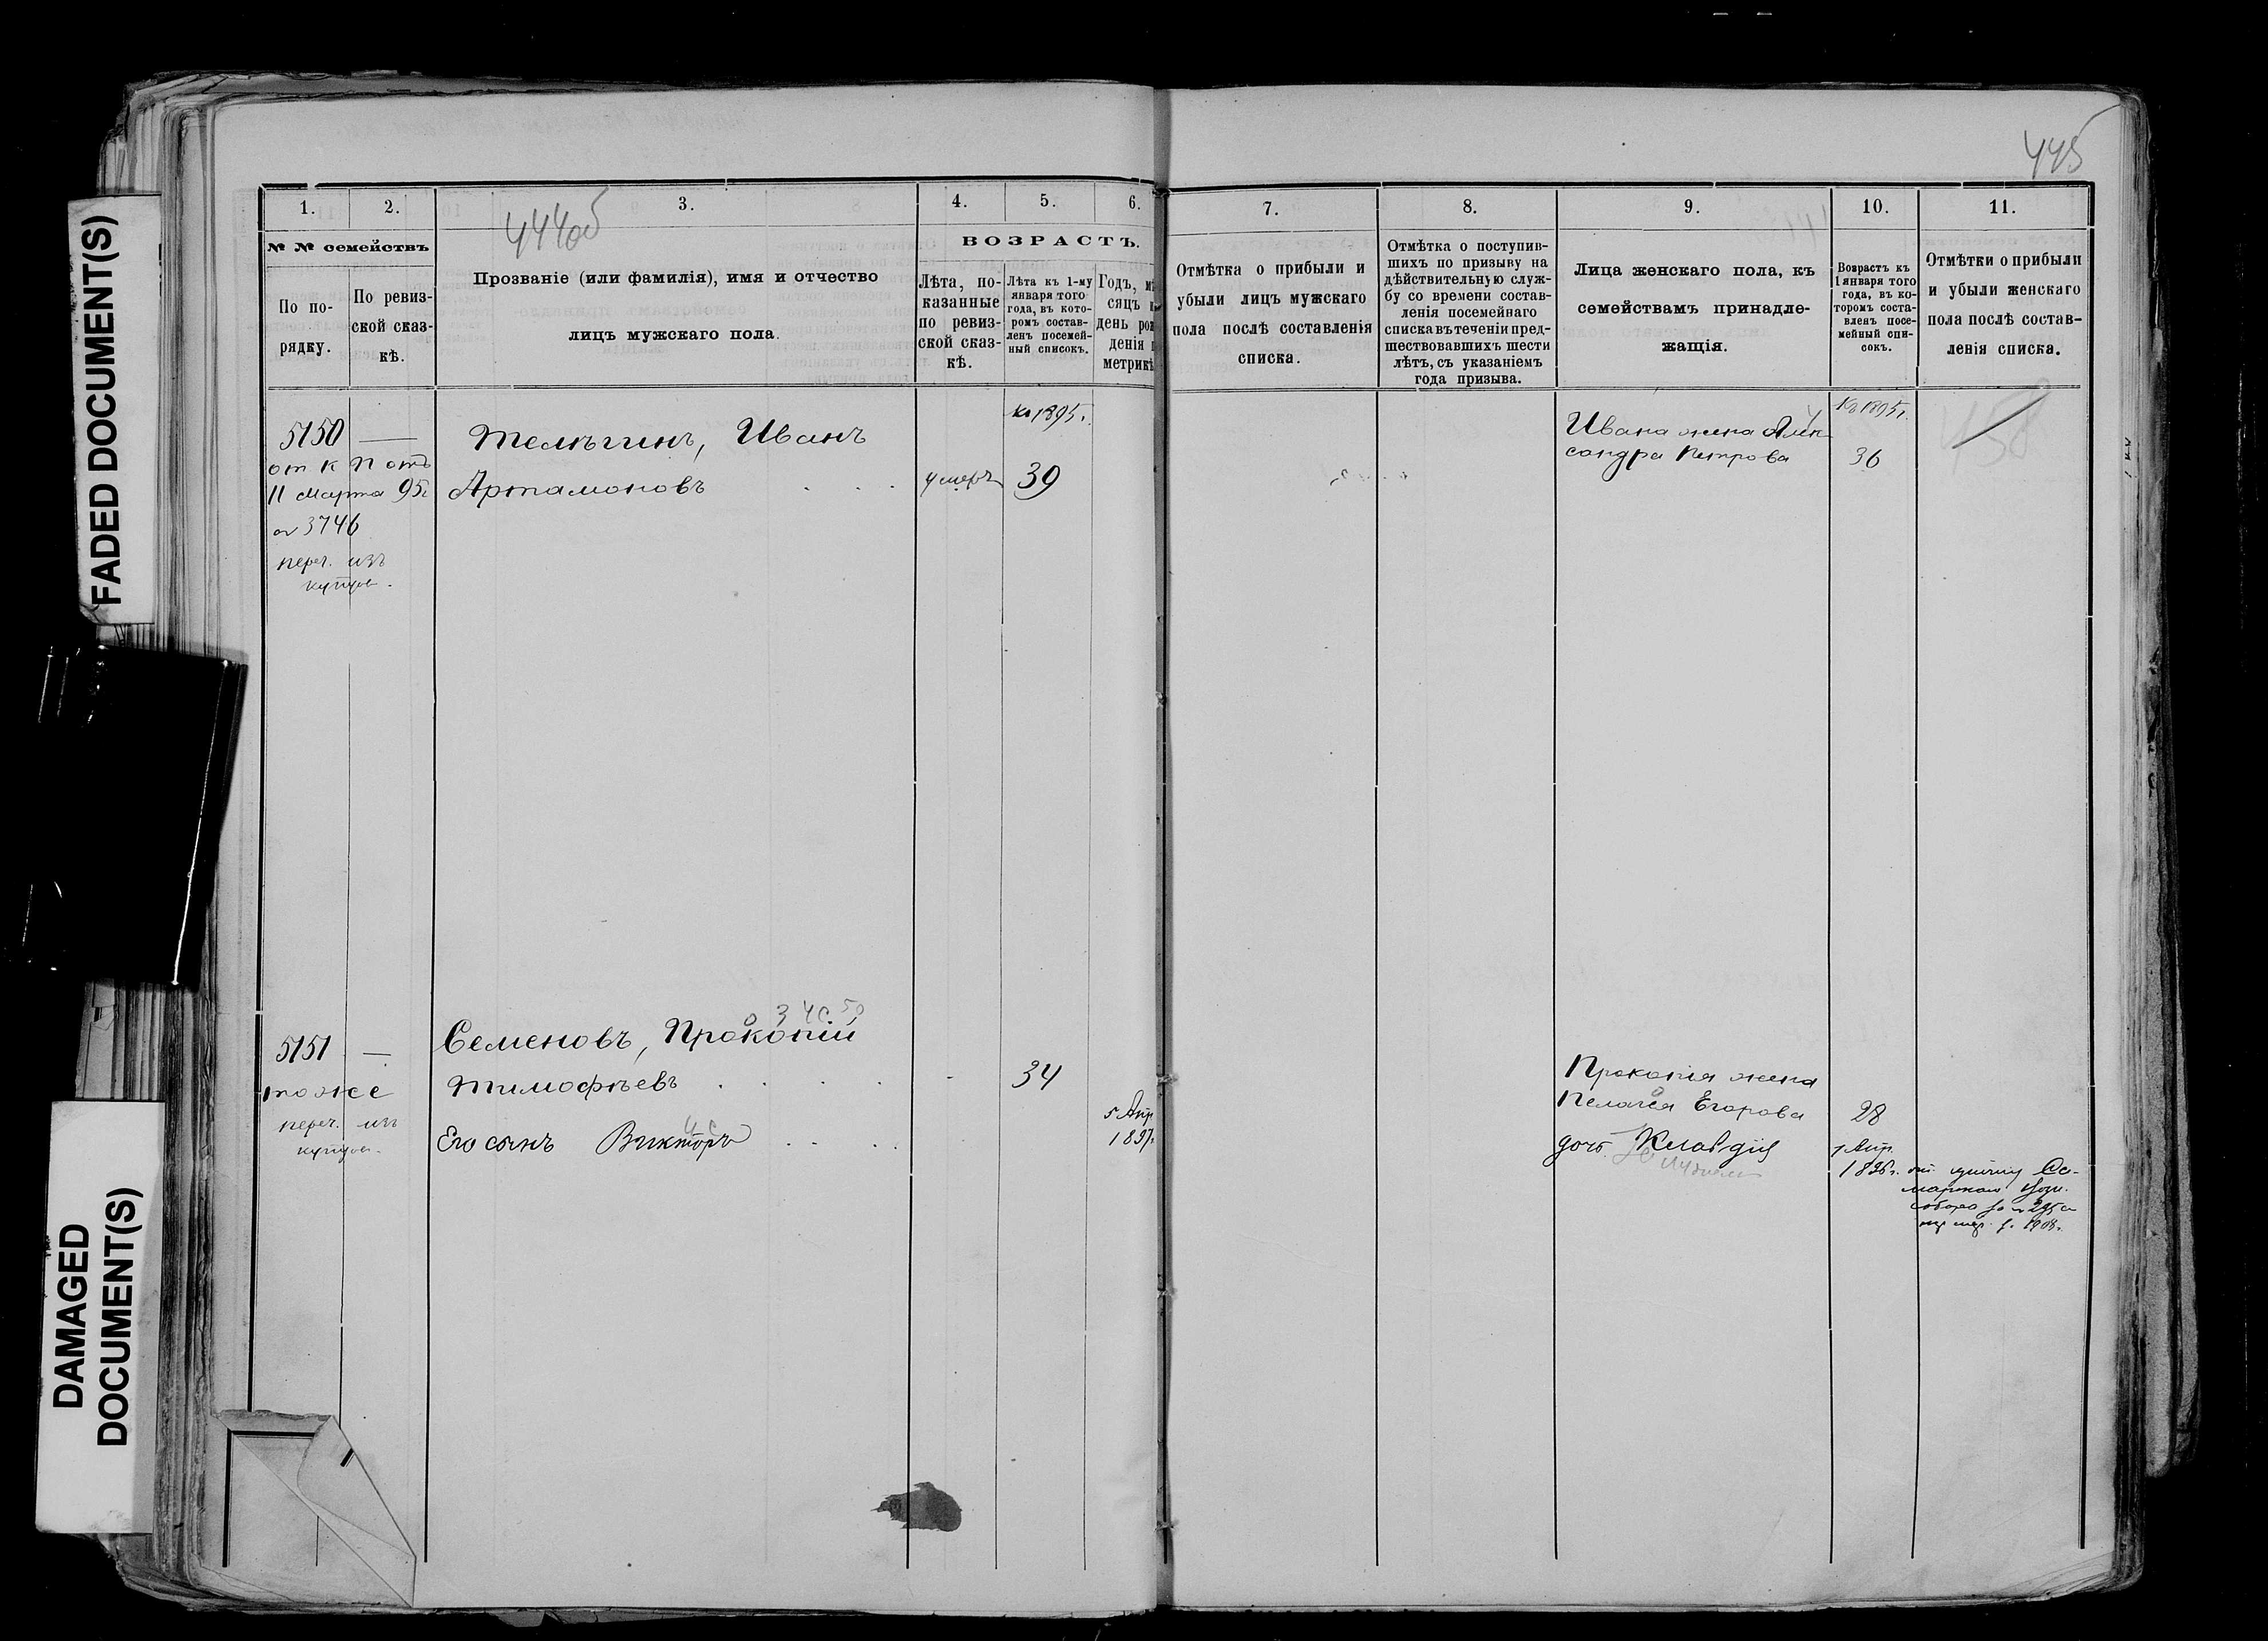 FADED DOCUMENT(S)
DAMAGED
DOCUMENT(S)
444об
445
1.
2.
3.
4.
5.
6.
7.
8.
9.
10.
11.
№ № семействъ
По по-
рядку.
По ревиз-
ской сказ-
кѣ.
Прозваніе (или фамилія), имя и отчество
лицъ мужскаго пола.
ВОЗРАСТЪ.
Лѣта, по-
казанные
по ревиз-
ской сказ-
кѣ.
Лѣта къ 1-му
января того
года, въ кото-
ромъ состав-
ленъ посемей-
ный списокъ.
Годъ, мѣ
сяцъ и
день рож
денія п
метрикѣ
Отмѣтка о прибыли и
убыли лицъ мужскаго
пола послѣ составленія
списка.
Отмѣтка о поступив-
шихъ по призыву на
дѣйствительную служ-
бу со времени состав-
ленія посемейнаго
списка въ теченіи пред-
шествовавшихъ шести
лѣтъ, съ указаніемъ
года призыва.
Лица женскаго пола, къ
семействамъ принадле-
жащія.
Возрастъ къ
1 января того
года, въ ко-
торомъ соста-
вленъ посе-
мейный спи-
сокъ.
Отмѣтки о прибыли
и убыли женскаго
пола послѣ состав-
ленія списка.
5150 —
от К П отъ
11 Марта 95г
№ 3746
переч. изъ
купцов.
Телѣгинъ, Иванъ
Артамоновъ
умеръ
Къ 1895г.
39
Ивана жена Алек-
сандра Петрова
Къ 1895г.
36
5151 —
тоже
переч. изъ
купцов.
Семеновъ, Прокопій
Тимофѣевъ
34
Его сынъ Викторъ
5 Апр
1897г.
Прокопія жена
Пелагея Егорова
28
дочь Клавдія
1896г.
1908г.